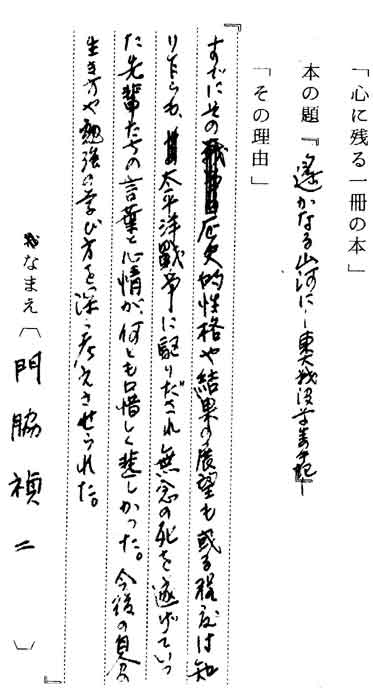 「心に残る一冊の本」
本の題『遙かなる山河に―東大戦没学生の手記―』
「その理由」
『すでにその歴史的性格や結果の展望も或る程度は知
りながらも、太平洋戦争に駆りだされ無念の死を遂げていっ
た先輩たちの言葉と心情が、何とも口惜しく悲しかった。今後の自分の
生き方や勉強の学び方を深く考えさせられた。
』
おなまえ〔門脇禎二〕